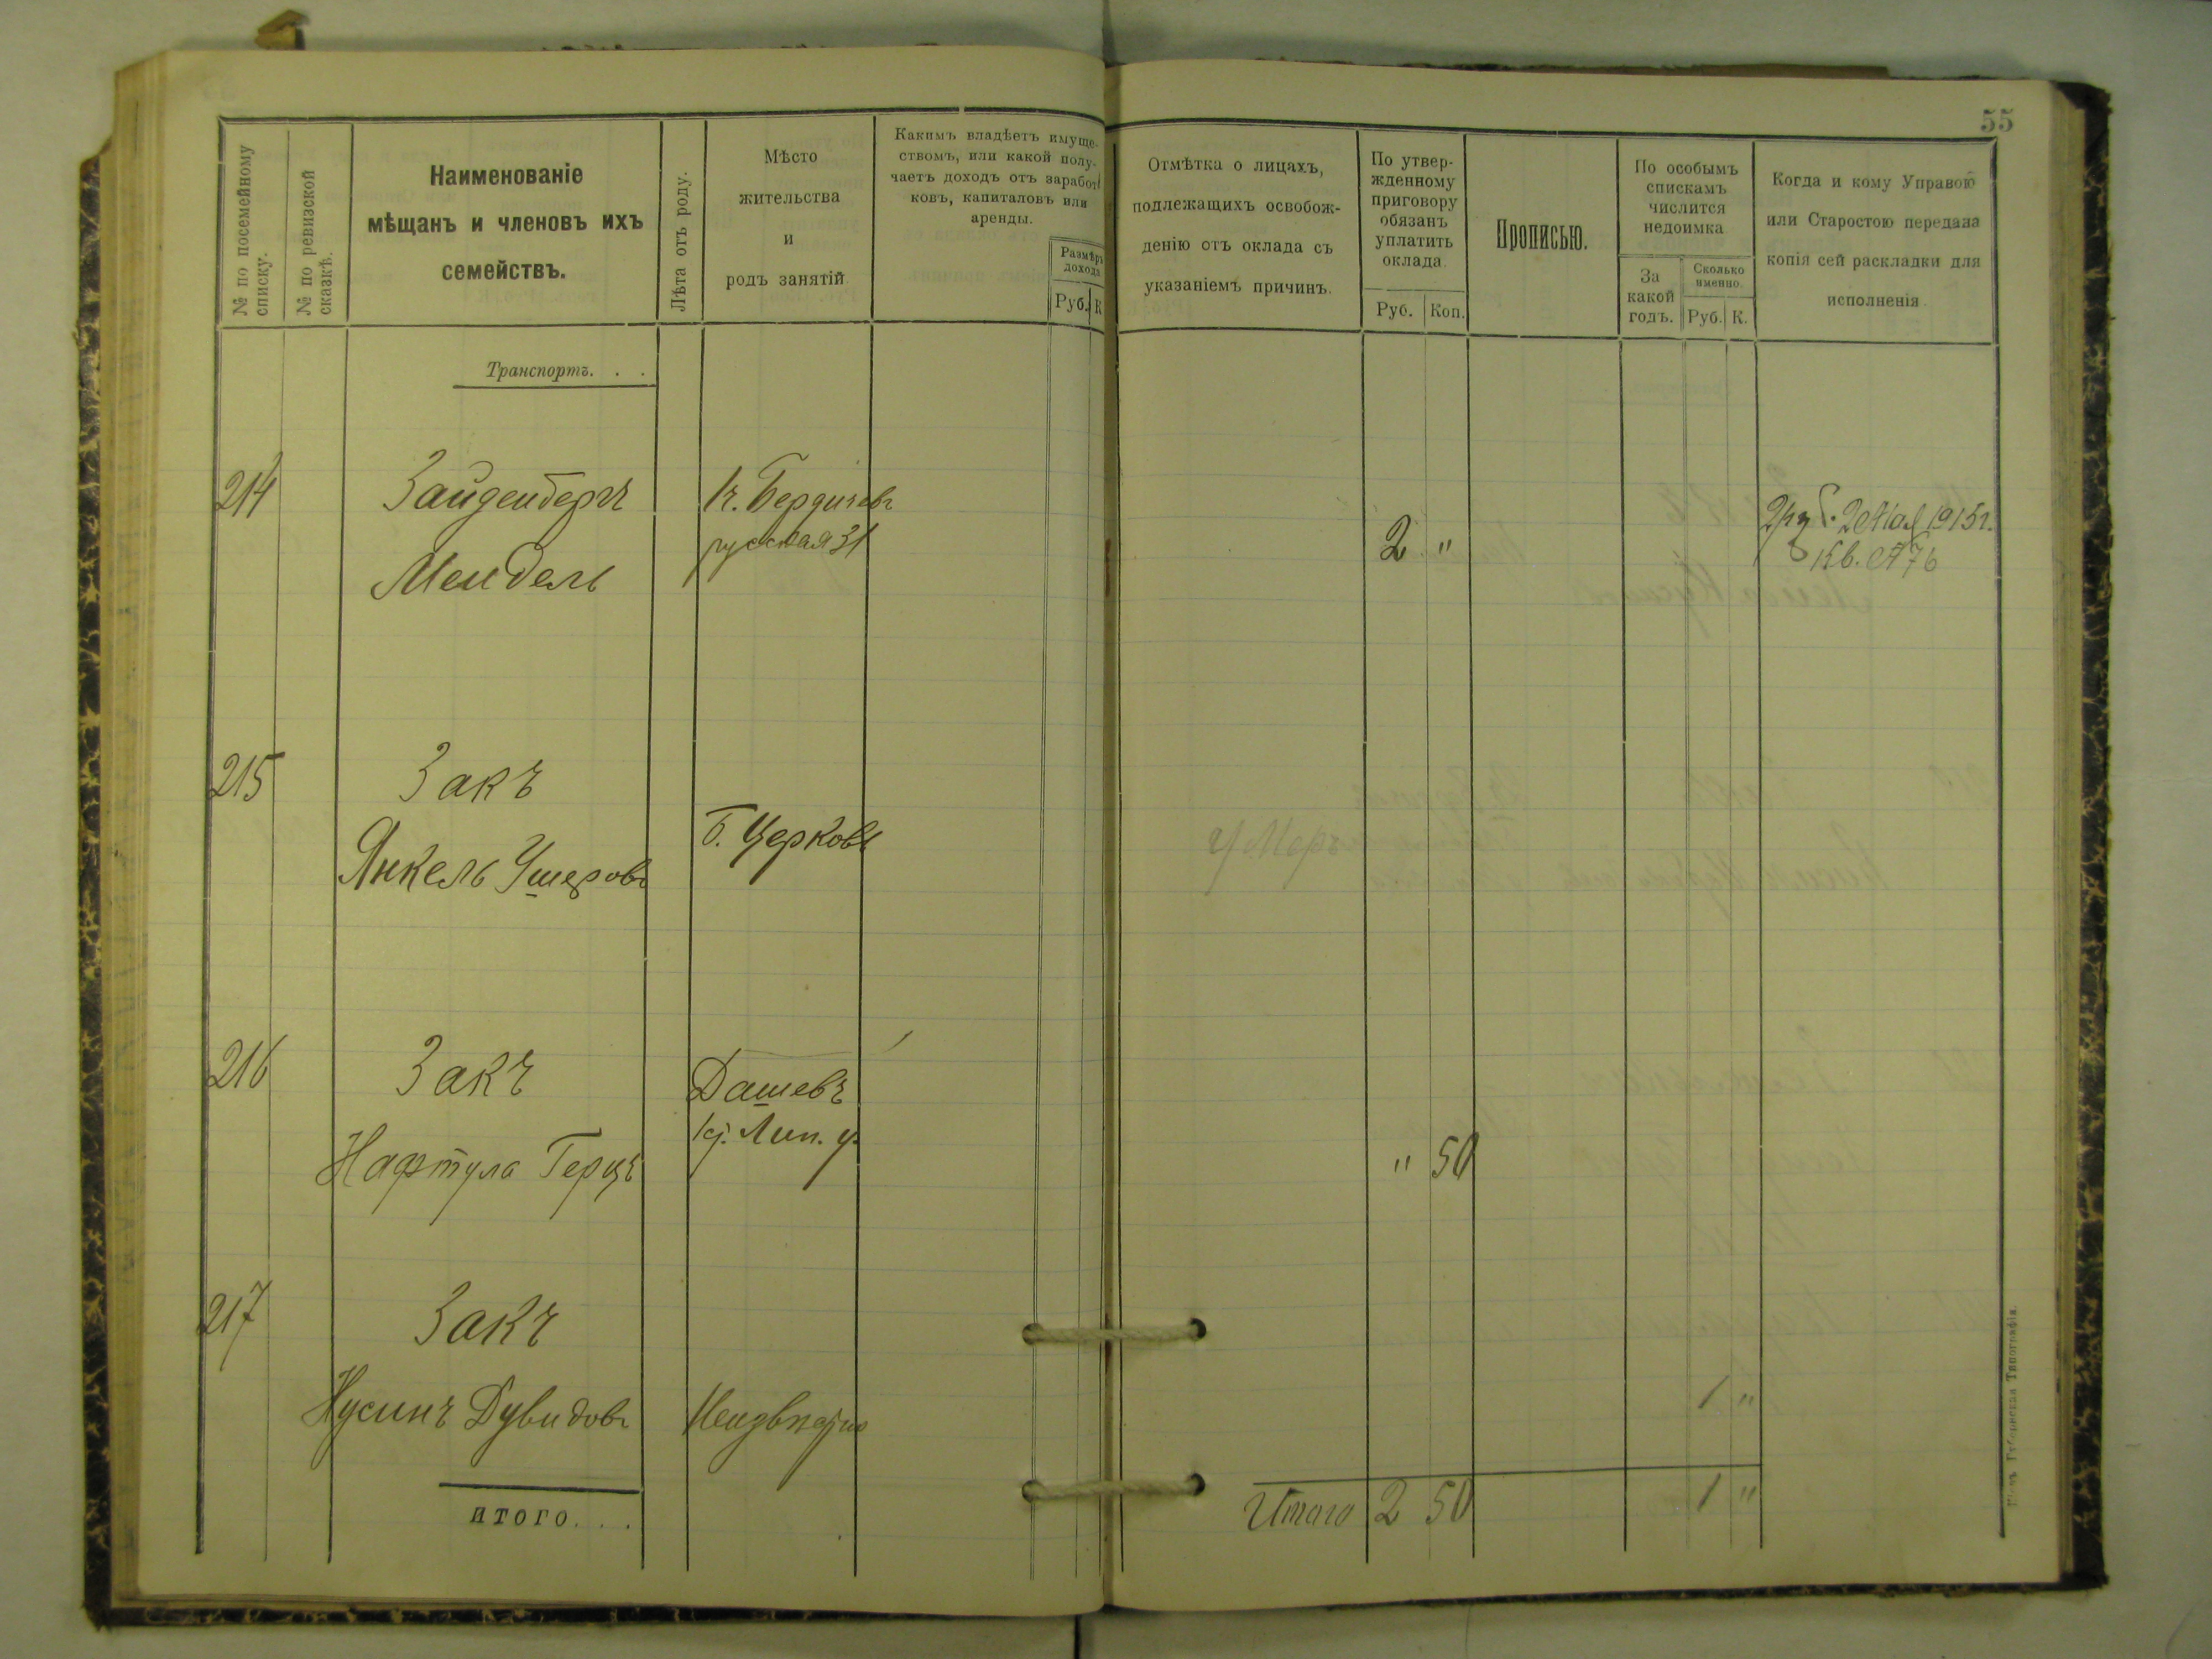 55
№ по посемейному
списку.
№ по ревизской
сказкѣ.
Наименованіе
мѣщанъ и членовъ ихъ
семействъ.
Лѣта отъ роду.
Мѣсто
жительства
и
родъ занятій
Какимъ владѣетъ имуще-
ствомъ, или какой полу-
чаетъ доходъ отъ заработ
ковъ, капиталовъ или
аренды.
Размѣръ
дохода
Руб. К
Отмѣтка о лицахъ,
подлежащихъ освобож-
денію отъ оклада съ
указаніемъ причинъ.
По утвер-
жденному
приговору
обязанъ
уплатить
оклада.
Руб. Коп.
Прописью.
По особымъ
спискамъ
числится
недоимка
За
какой
годъ.
Сколько
именно.
Руб. К.
Когда и кому Управою
или Старостою передана
копія сей раскладки для
исполненія.
Транспортъ. . .
214
Зайденберъ
Мендель
г. Бердичевъ
русская 31
2 "
2 Мая 1915г.
Кв. № 76
215
Закъ
Янкель Ушеровъ
Б. Церковь
Умеръ
216
Закъ
Нафтула Герцъ
Дашевъ
Лип. у.
" 50
217
Закъ
Нусинъ Дувидовъ
Неизвѣстно
1 "
итого. . .
Итого 2 50
1 "
Кіевъ Губернская Типографія.